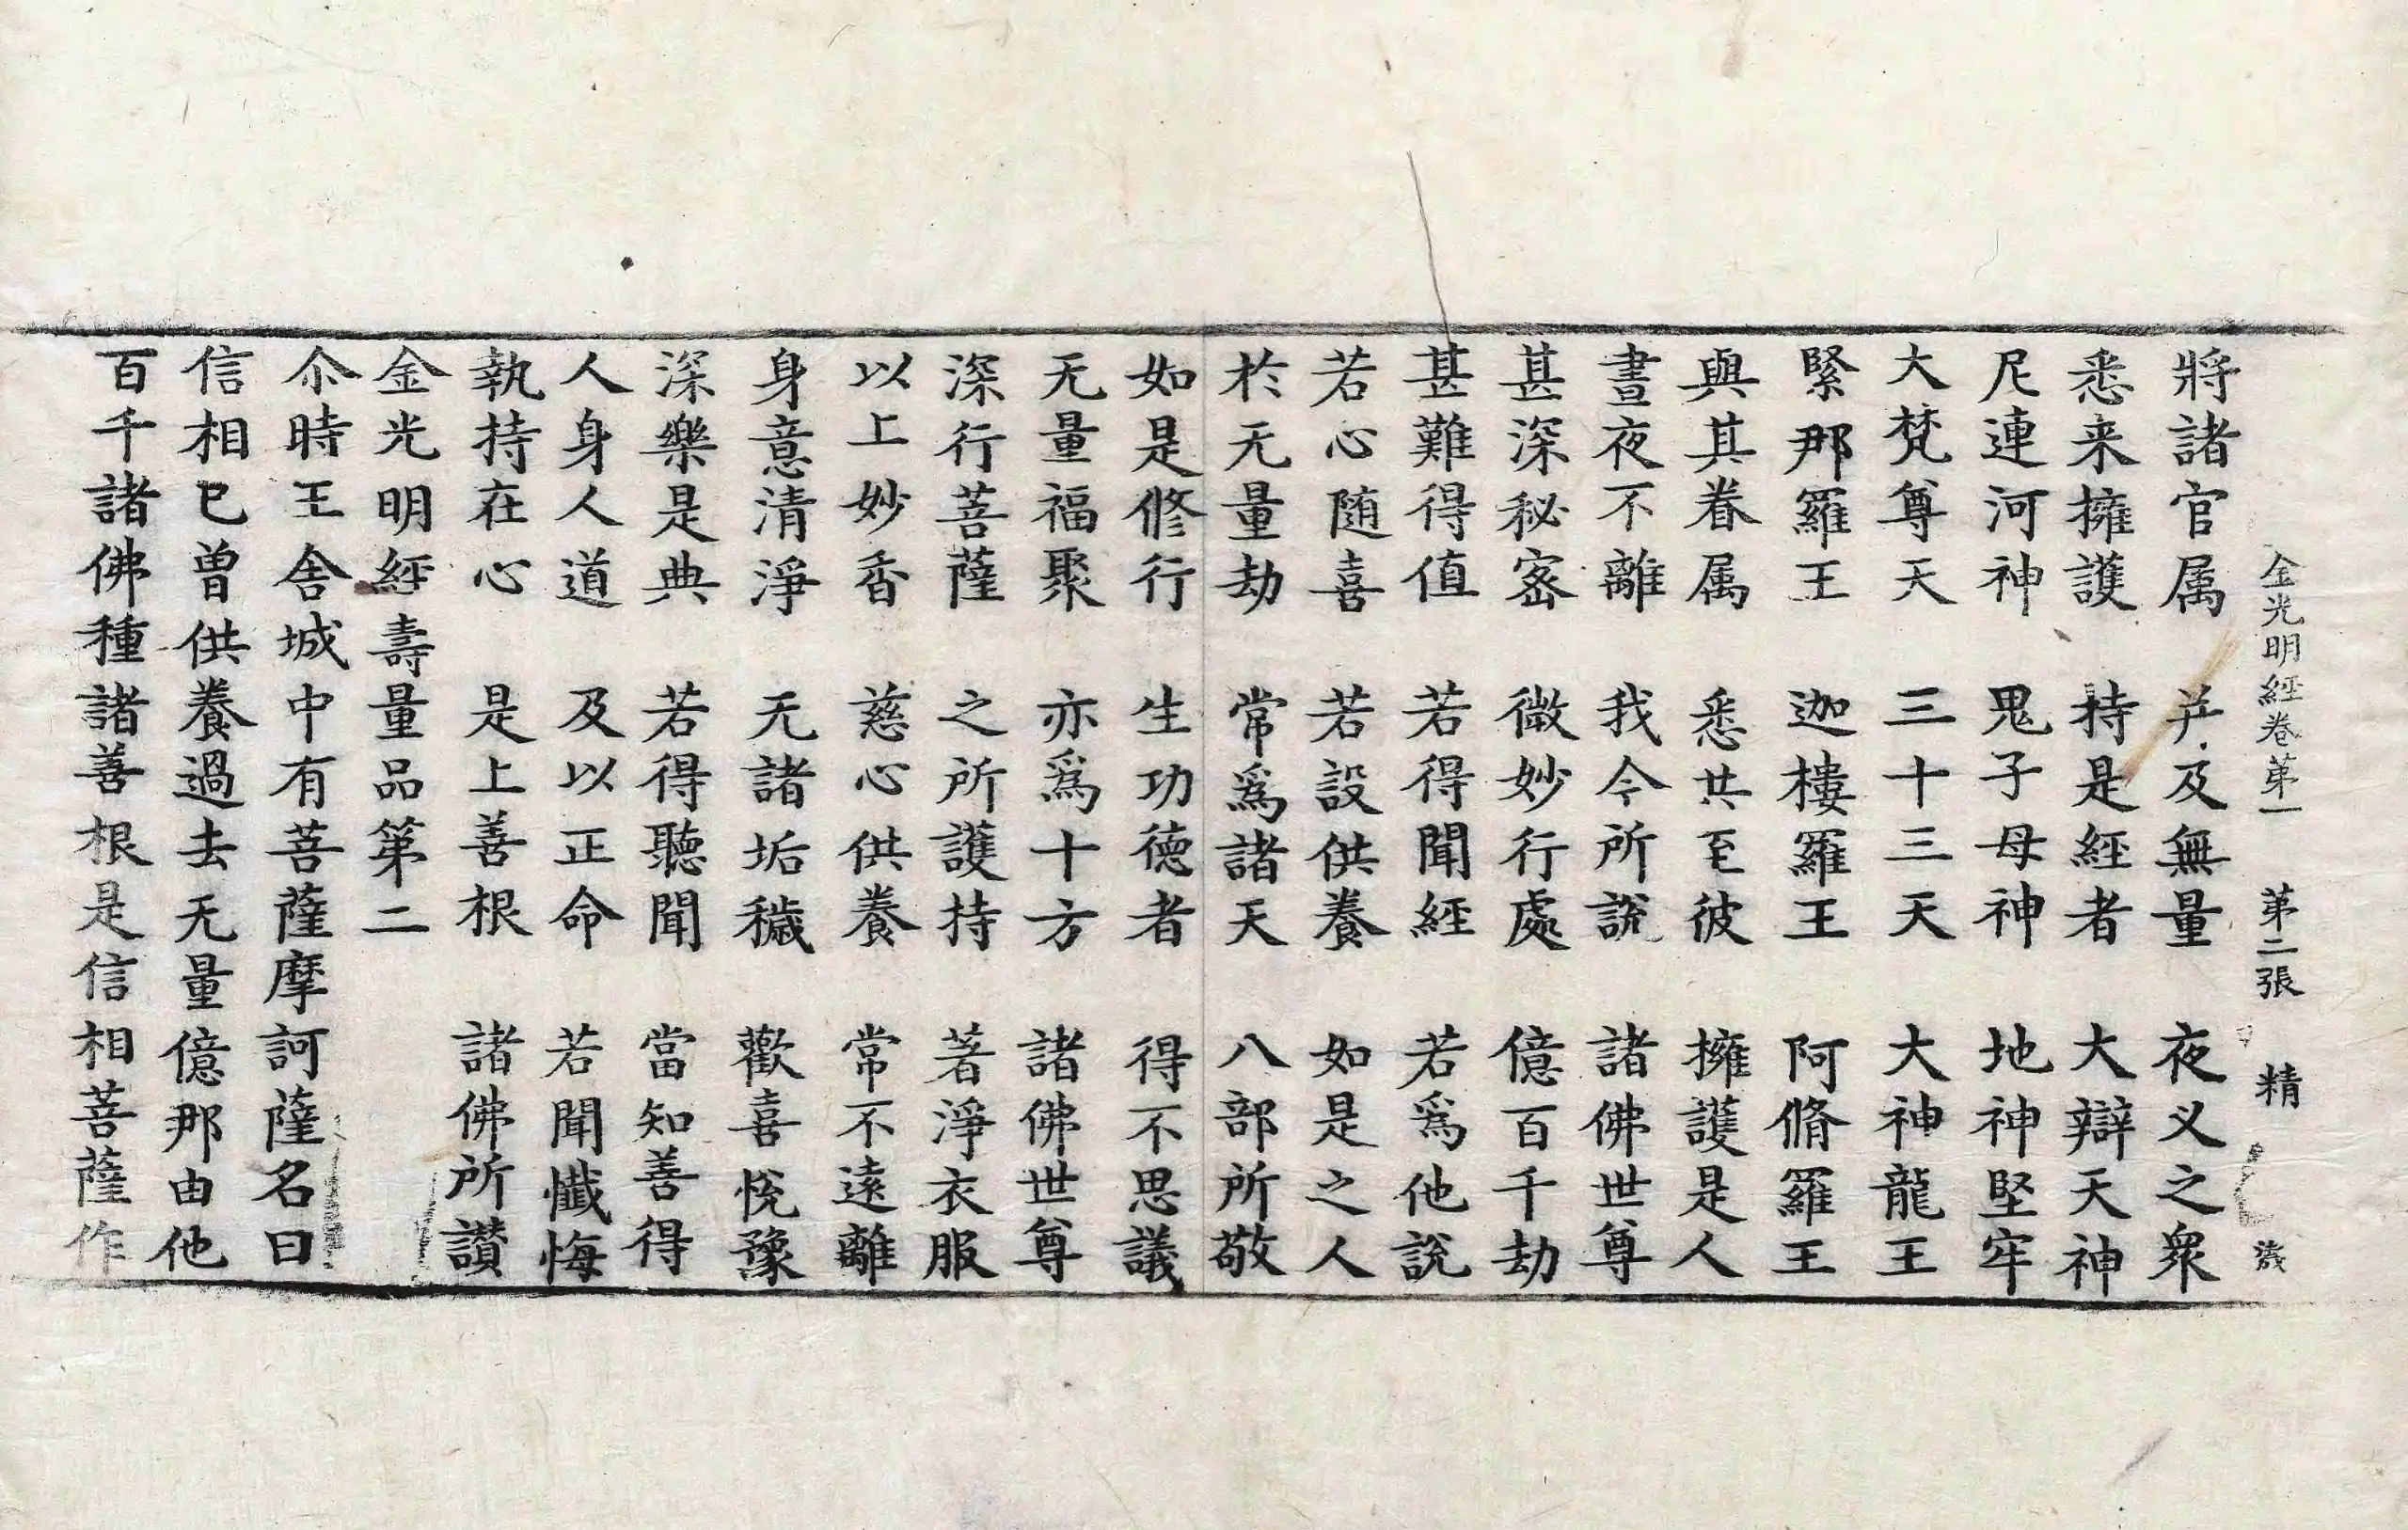 金光明經卷苐一 苐二張 精
將諸官属 并及無量 夜义之衆
悉来擁護 持是經者 大辯天神
尼連河神 鬼子母神 地神堅牢
大梵尊天 三十三天 大神龍王
緊那羅王 迦樓羅王 阿脩羅王
與其眷属 悉共至彼 擁護是人
晝夜不離 我今所說 諸佛世尊
甚深秘密 微妙行處 億百千劫
甚難得值 若得聞經 若爲他說
若心随喜 若設供養 如是之人
於无量劫 常爲諸天 八部所敬
如是修行 生功德者 得不思議
无量福聚 亦爲十方 諸佛世尊
深行菩薩 之所護持 著淨衣服
以上妙香 慈心供養 常不遠離
身意清淨 无諸垢穢 歡喜悅豫
深樂是典 若得聽聞 當知善得
人身人道 及以正命 若聞懺悔
執持在心 是上善根 諸佛所讃
金光明經壽量品第二
尒時王舍城中有菩薩摩訶薩名曰
信相已曾供養過去无量億那由他
百千諸佛種諸善根是信相菩薩作